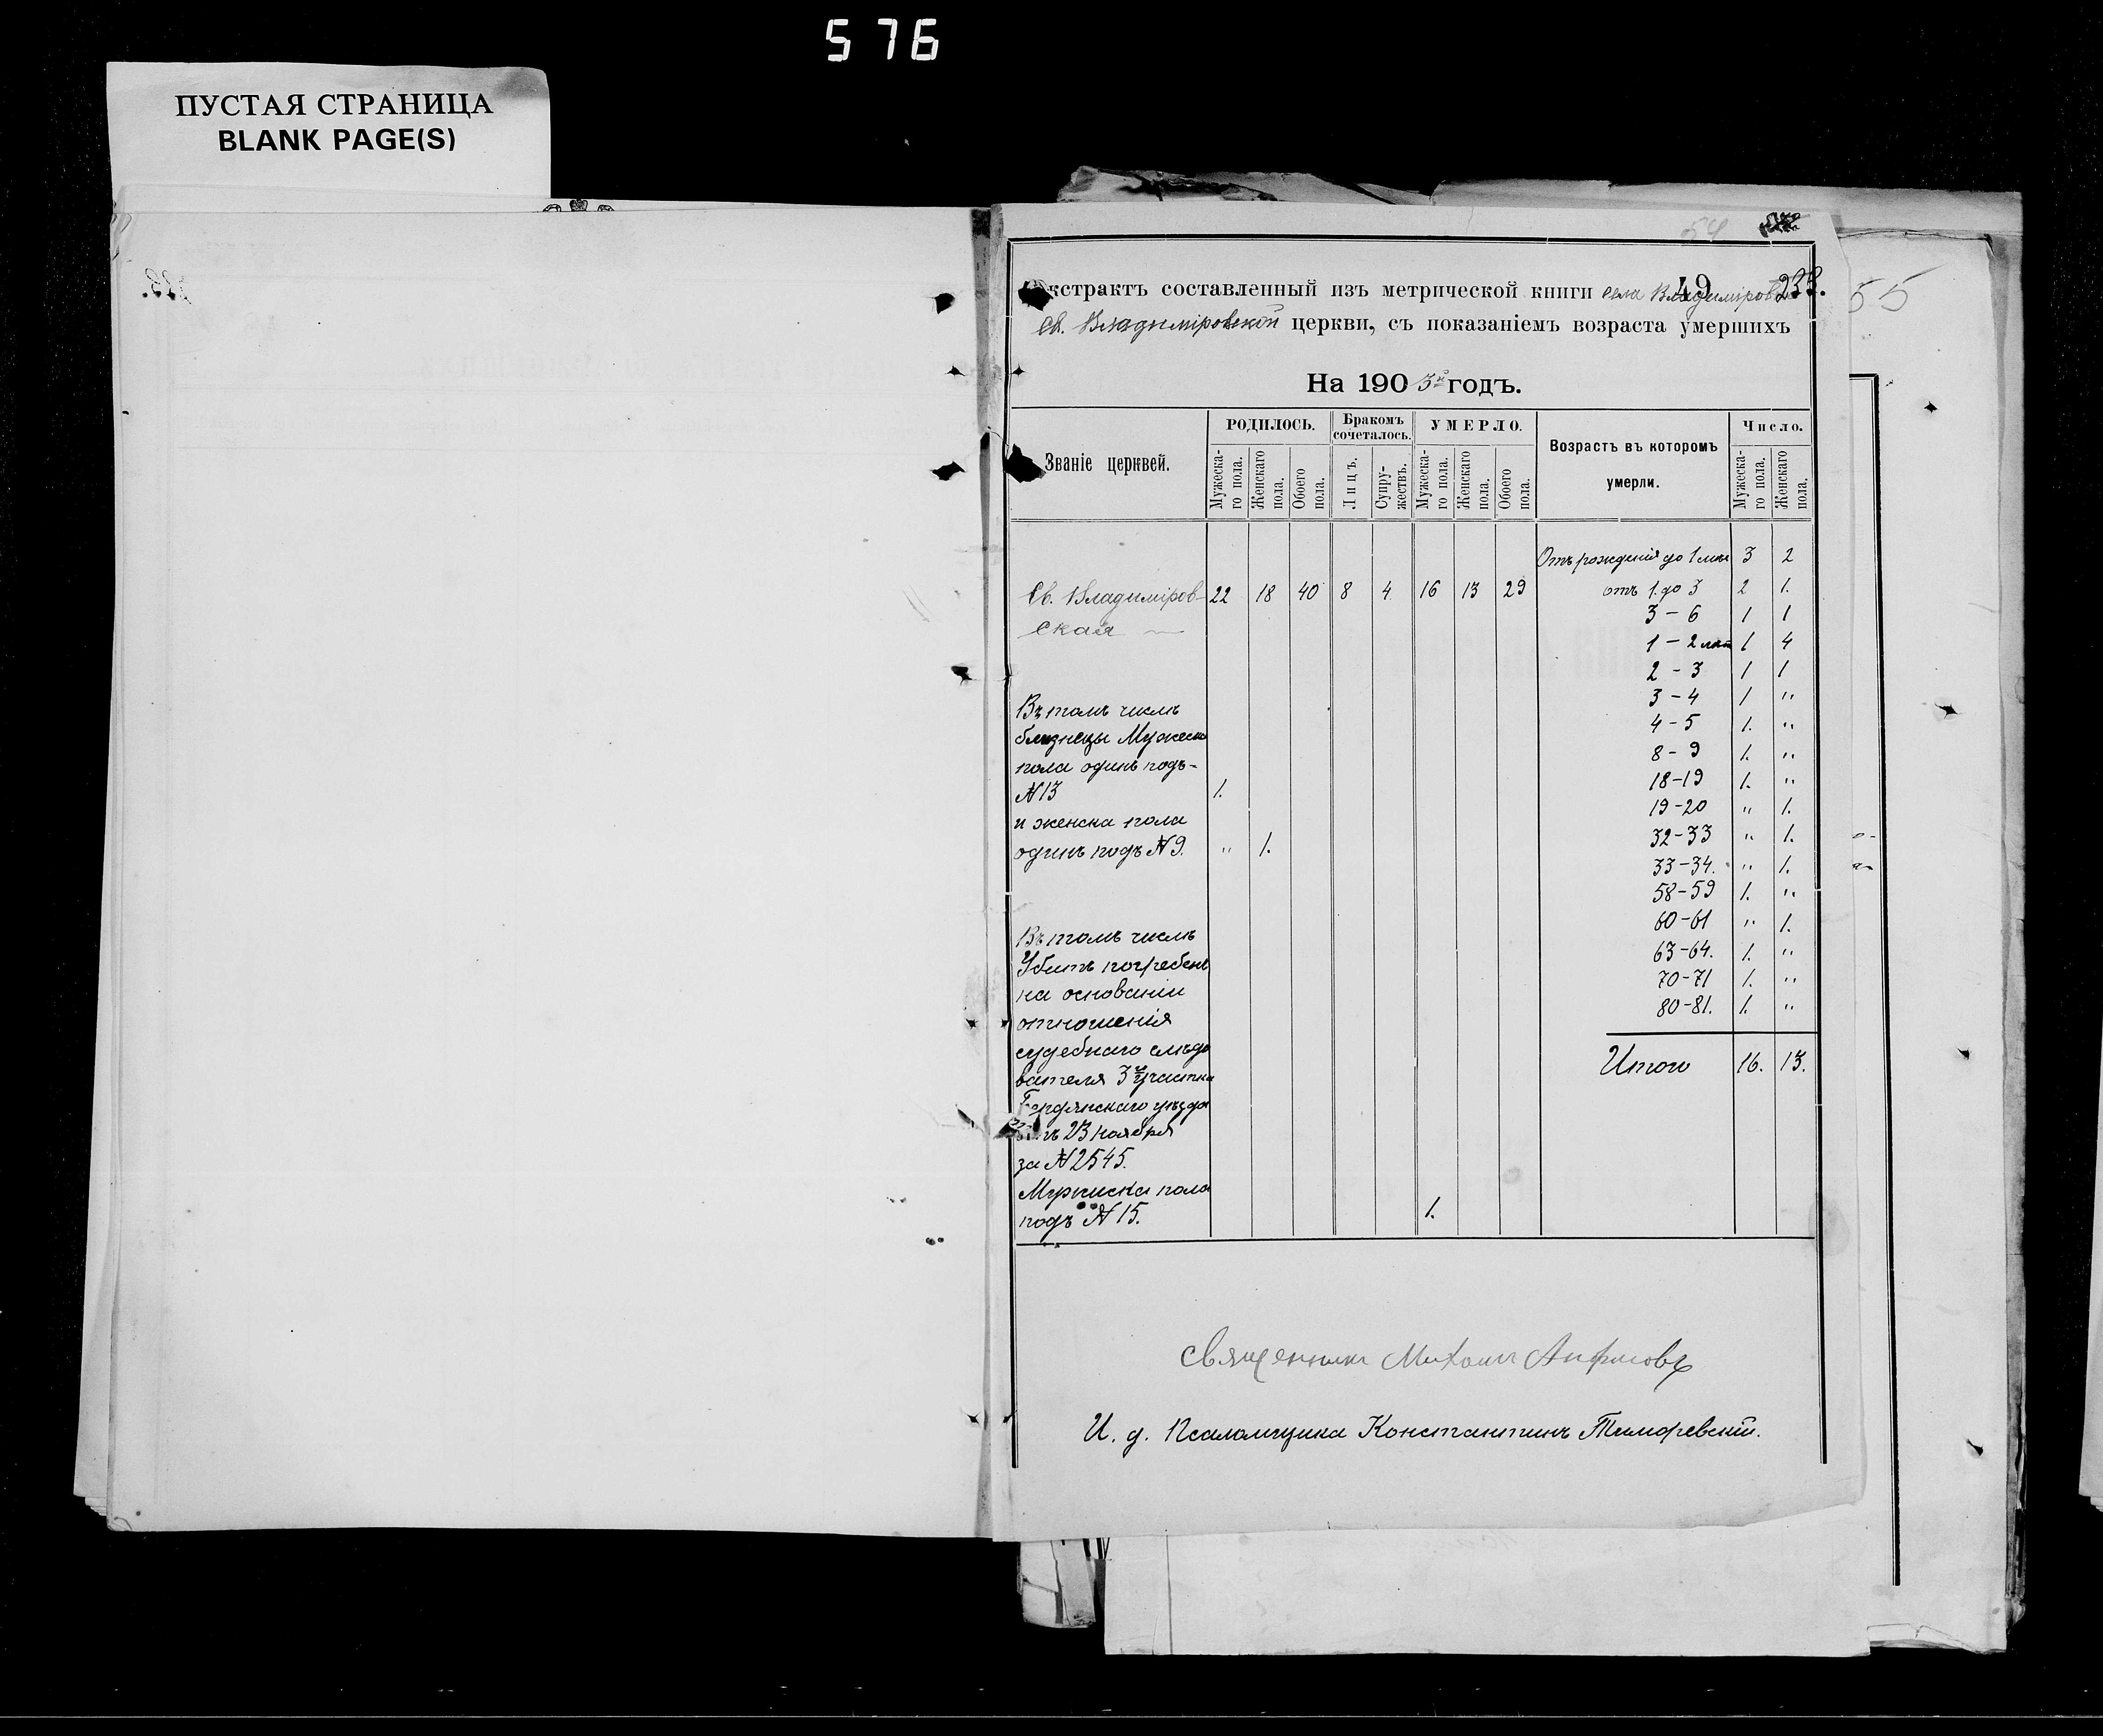 576
ПУСТАЯ СТРАНИЦА
BLANK PAGE(S)
54
49
233.
55
Экстрактъ составленный изъ метрической книги села Владиміровки
Св. Владиміровской церкви, съ показаніемъ возраста умершихъ
На 1903й годъ.
Званіе церквей.
РОДИЛОСЬ.
Бракомъ сочеталось.
УМЕРЛО.
Возрастъ въ которомъ умерли.
Число.
Мужеска-го пола.
Женскаго пола.
Обоего пола.
Лицъ.
Супру-жествъ.
Мужеска-го пола.
Женскаго пола.
Обоего пола.
Мужеска-го пола.
Женскаго пола.
Св. Владиміров-ская 22 18 40 8 4 16 13 29
Отъ рожденія до 1 мѣс 3 2
отъ 1 до 3 2 1.
3 – 6 1 1
1 – 2 лѣт 1 4
2 – 3 1 1
3 – 4 1 "
4 – 5 1. "
8 – 9 1. "
18–19 1. "
19–20 " 1.
32–33 " 1.
33–34. " 1.
58–59 1. "
60–61 " 1.
63–64. 1. "
70–71 1. "
80–81. 1. "
Итого 16. 13.
Въ томъ числѣ
близнецы Мужеска
пола одинъ подъ-
№13 1.
и женска пола
одинъ подъ №9. " 1.
Въ томъ числѣ
Убитъ погребенъ
на основаніи
отношенія
судебнаго слѣдо
вателя 3го участка
Бердянскаго уѣзда
отъ 23 ноября
за №2545.
Мужеска пола
подъ №15. 1.
Священникъ Михаилъ
И. д. Псаломщика Константинъ Тимофевскій.